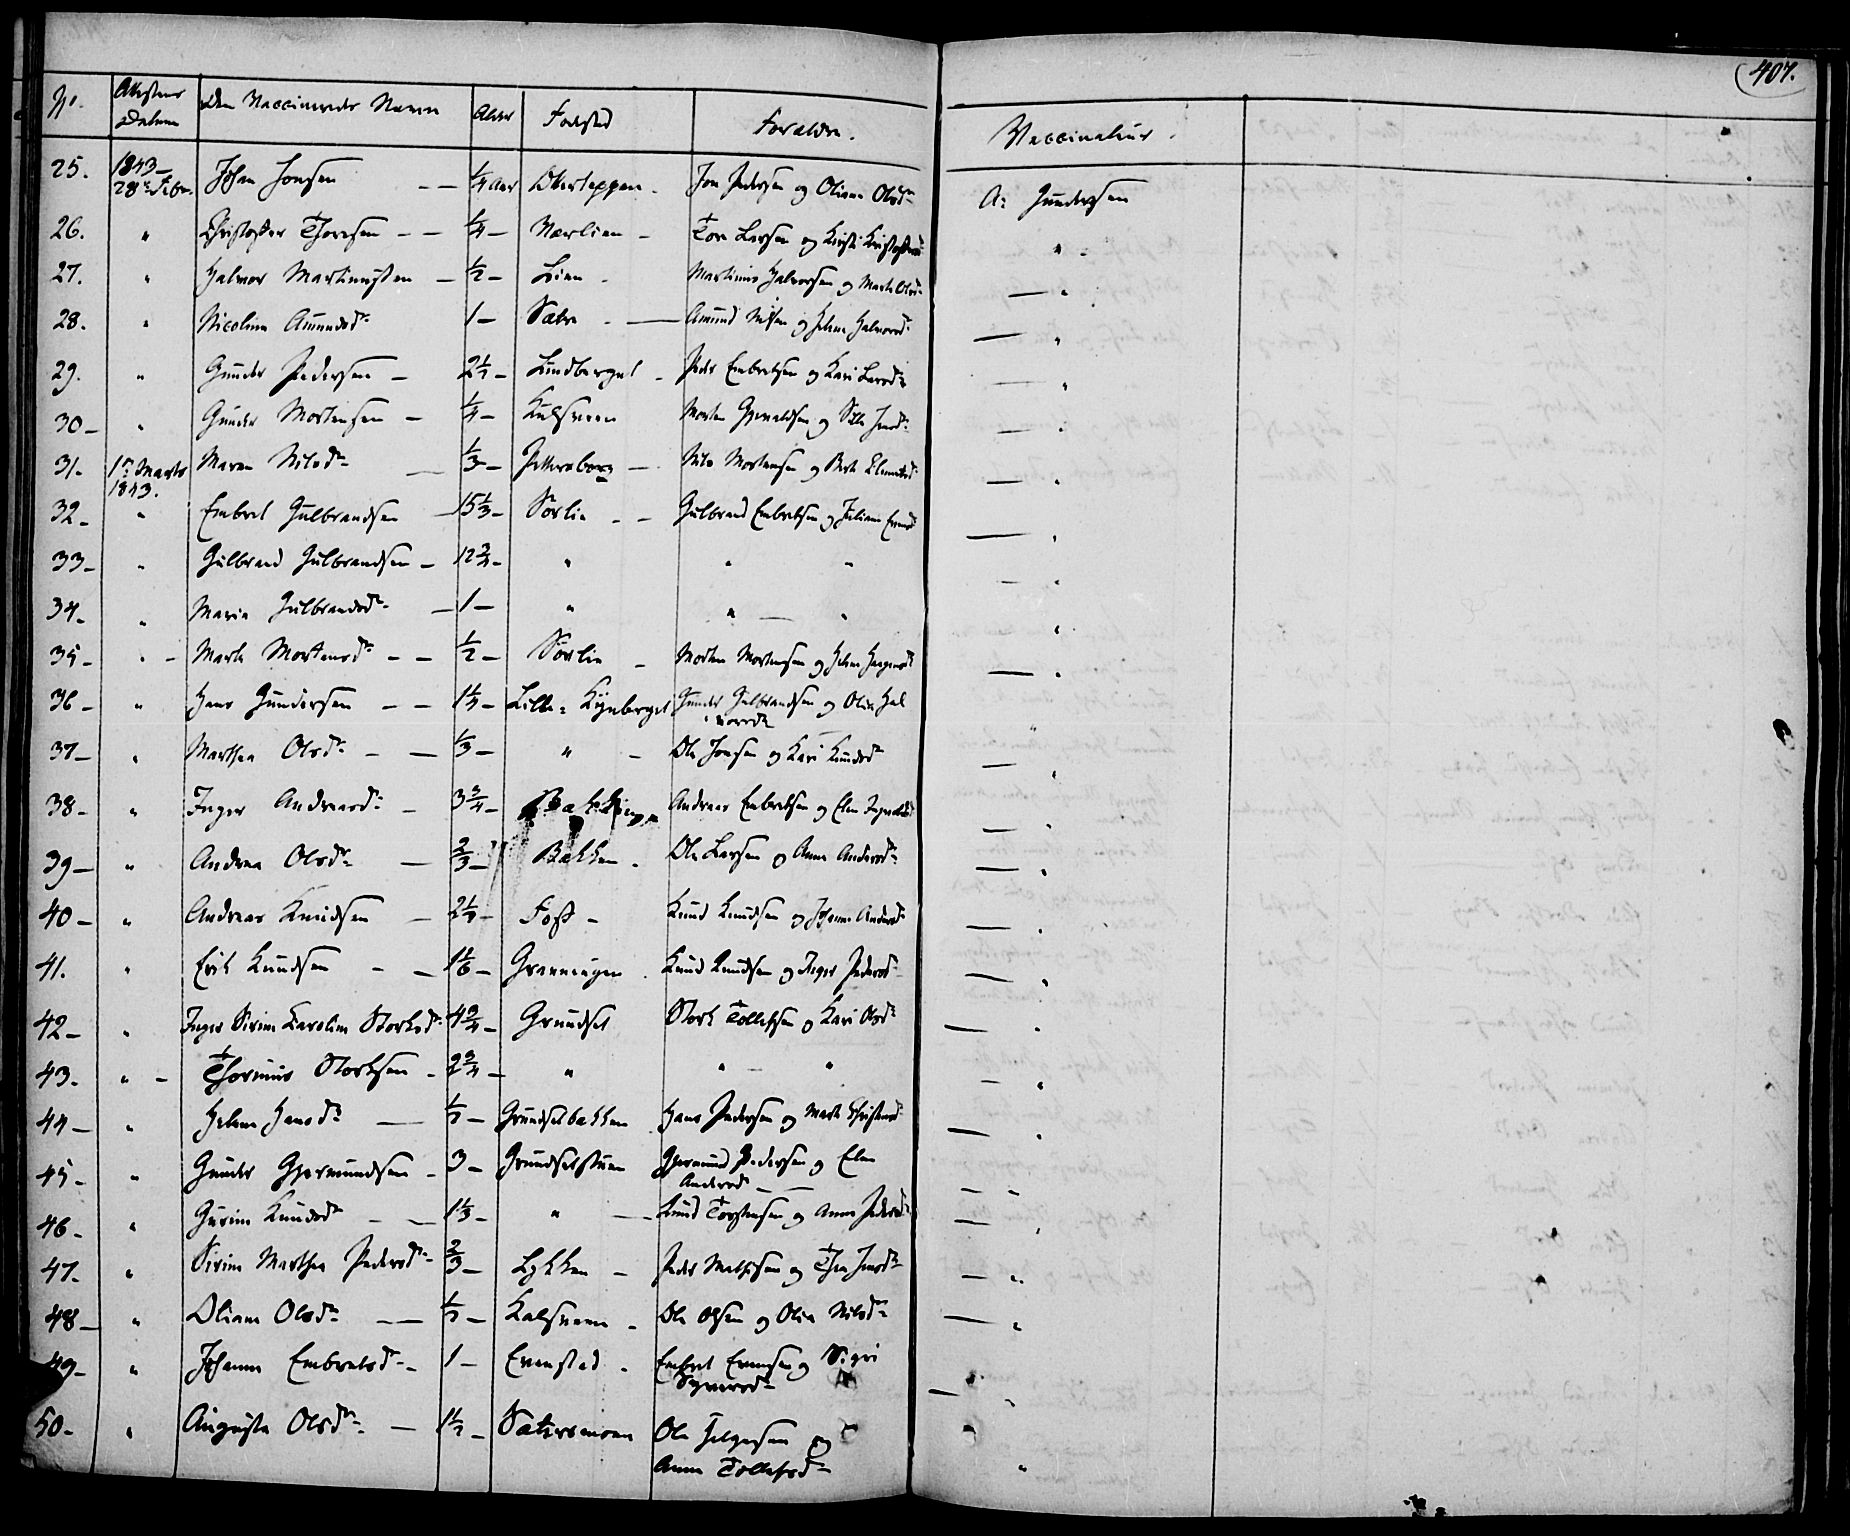 407.
No. Attestens Datum Den Vaccineredes Navn Alder Fødested Forældre. Vaccinateur.
25. 1843 28de Febr. Johan Jonsen — — 1/4 Aar Jon Pedersen og Oliane Olsdr. A: Gundersen
26. " Christopher Thoresen — — 1/4 — Mærlien — Tore Larsen og Kirsti "
27. " Halvor Martinussen — 1/2 — Lien — Martinus Halvorsen og Marte Olsdr. — "
28. " Nicoline Amundsdr. 1 — Sætre — Amund Nilsen og Helene Halvorsdr. — "
29. " Gunder Pedersen — 2 1/2 — Lundberget — Peder Embretsen og Kari Larsdr. "
30 — " Gunder Mortensen — 1/4 — Kalsveen Morten og — "
31. 1ste Marts 1843. Maren Nilsdr. — 1/3 — Petersborg — Nils Mortensen og Berte — "
32 — " Embret Gulbrandsen — 15 1/3 — Sørlie — — Gulbrand Embretsen og Juliane — "
33 — " Gulbrand Gulbrandsen — 12 3/4 — " " " — "
34 — " Marie Gulbrandsdr. — 1 — " " — " "
35 — " — Marte Mortensdr. — — 1/2 — Sørlie — Morten Mortensen og Helene — "
36 — " Hans Gundersen — — 1 1/2 — Lille-Kynberget Gunder Gulbrandsen og Olia Hal "
vorsdr
37 — " Marthea Olsdr. — — 1/3 — " — Ole Jonsen og Kari Knudsdr — "
38 — " Inger Andreasdr. — 3 3/4 — Andreas Embretsen og Elen — "
39 — " Andrea Olsdr. — 2/3 — Bakken — Ole Larsen og Anne Andersdr. — "
40 — " Andreas Knudsen — 2 1/2 — Foss — Knud Knudsen og Johanne Andersdr — "
41. " Erik Knudsen — — 1 1/6 — Grønningen Knud Knudsen og Inger Pedersdr — "
42 — " Inger Sirine Karoline Storksdr. 4 3/4 — Grundset Stork Tollefsen og Kari Olsdr — "
43. " — Thorinus Storksen — 2 3/4 — " " " — "
44 — " Helene Hansdr. — 1/2 — Grundsetbakken Hans Pedersen og Marte — "
45 — " Gunder Gjermundsen — 3 — Grundsetstuen Gjermund Pedersen og Elen
Andersdr — — — "
46 — " Gurine Knudsdr — — 1 1/3 — " — Knud Torstensen og Anne Pedersdr — "
47. " Sirine Marthea Pedersdr. 2/3 — Løkken — Peder Mathisen og Thea Jensdr — "
48 — " Oliane Olsdr. — — 1/2 — Kalsveen — Ole Olsen og Olia Nilsdr. — "
49 — " Johanne Embretsdr. — 1 — Evenstad — Embret Evensen og Sigri
Syversdr — "
50 — " Augusta Olsdr. — 1 1/2 — Sætersmoen Ole Helgesen og
Anne Tollefsdr — "